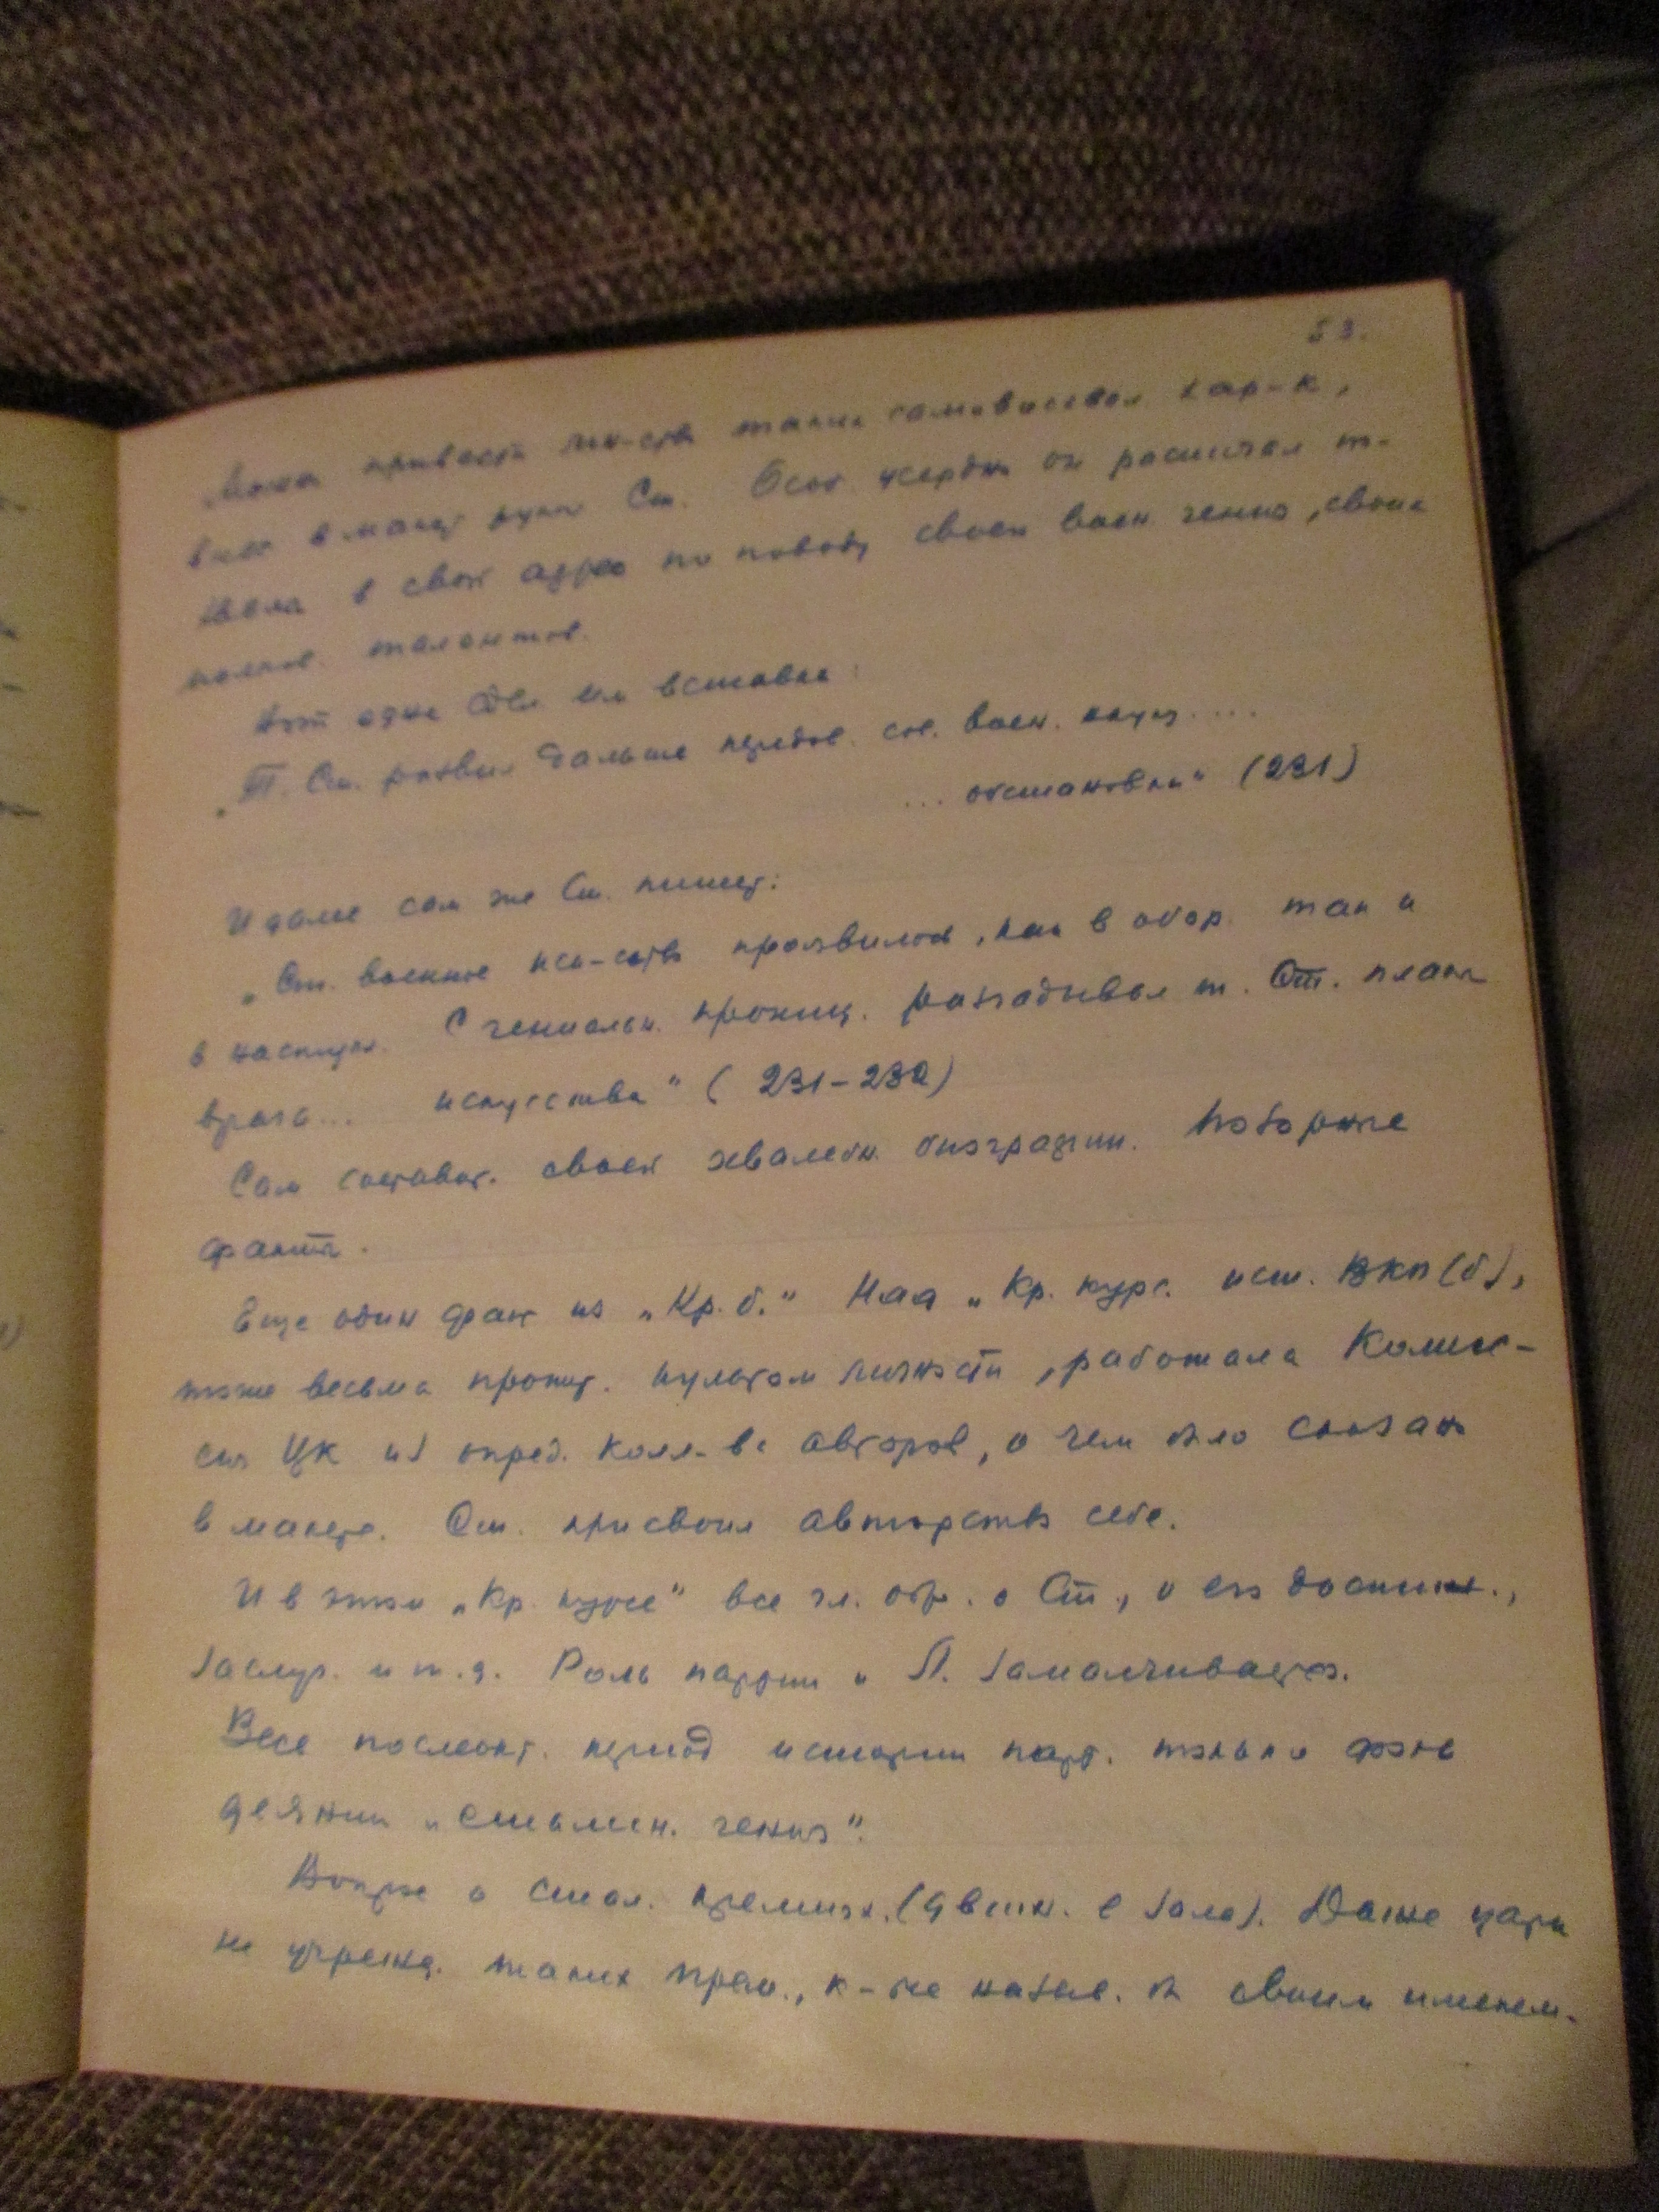 53.
Можно привести мн-ство таких самовосхвал. хар-к,
внес. в макет рукой Ст. Особ. усердно он расточал т-
хвала в свой адрес по поводу своего воен. гения, своих
полков. талантов.
Вот одна сдел. им вставка:
„Т. Ст. развил дальше передов. сов. воен. науку ....
... обстановки" (231)
И далее сам же Ст. пишет:
„Ст. военное иск-ство проявилось, как в обор. так и
в наступл. С гениальн. прониц. разгадывал т. Ст. планы
врага... искусства" (231-232)
Сам составит. своей хвалебн. биографии. Позорные
факты.
Еще один факт из „Кр. б." Над „Кр. курс. ист. ВКП(б),
тоже весьма пропит. культом личности, работала Комис-
сия ЦК из опред. колл-ва авторов, о чем было сказано
в макете. Ст. присвоил авторство себе.
И в этом „Кр. курсе" все гл. обр. о Ст., о его достиж.,
заслуг. и т.д. Роль партии и Л. замалчивается.
Весь послеокт. период истории парт. только фон
деяний „сталин. гения".
Вопрос о стал. премиях. (движ. в зале). Даже цари
не учрежд. таких прем., к-рые назыв. бы своим именем.